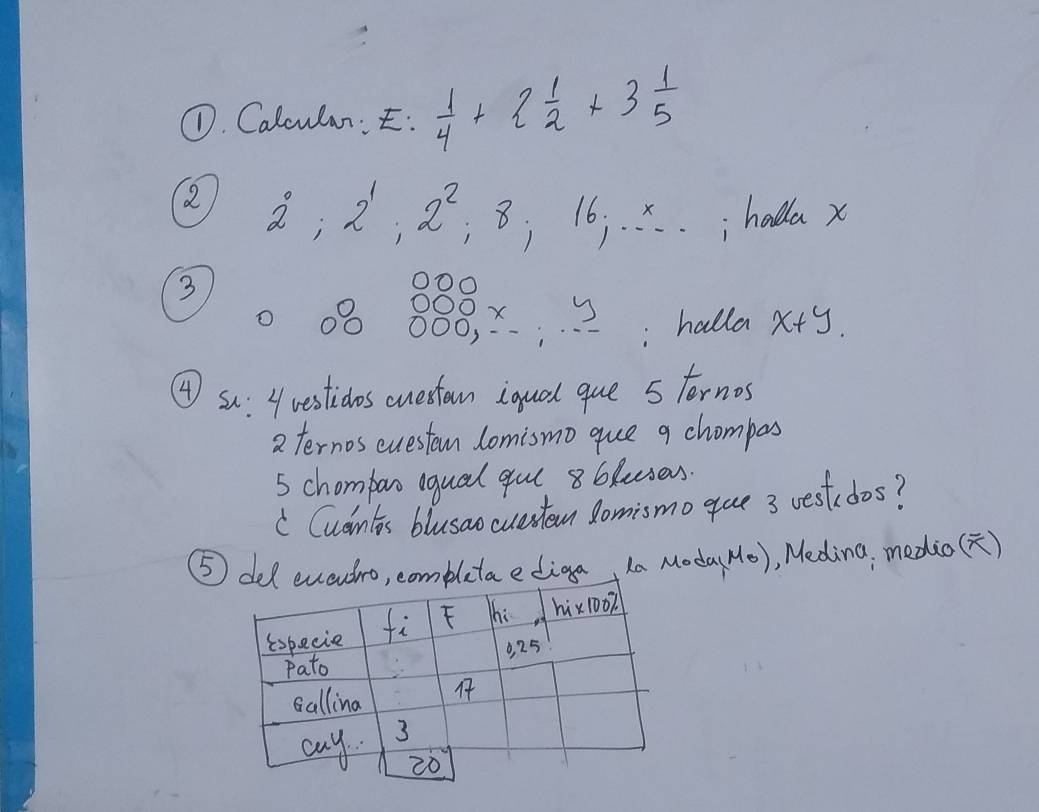 ①. Calcular: E: 1/4 + 2 1/2 + 3 1/5
② 2⁰ ; 2¹ ; 2² ; 8 ; 16; ..x.. ; halla x
③ , x ; y ; halla x+y.
④ si: 4 vestidos cuestan igual que 5 Ternos
2 Ternos cuestan lomismo que 9 chompas
5 chompas igual que 8 blusas.
¿ Cuántos blusas cuestan lomismo que 3 vestidos?
⑤ del cuadro, completa e diga, la Moda(Mo), Medina, medio(x̄)
Especie fi F hi hix100%
Pato 0,25
Gallina 17
Cuy.. 3
20